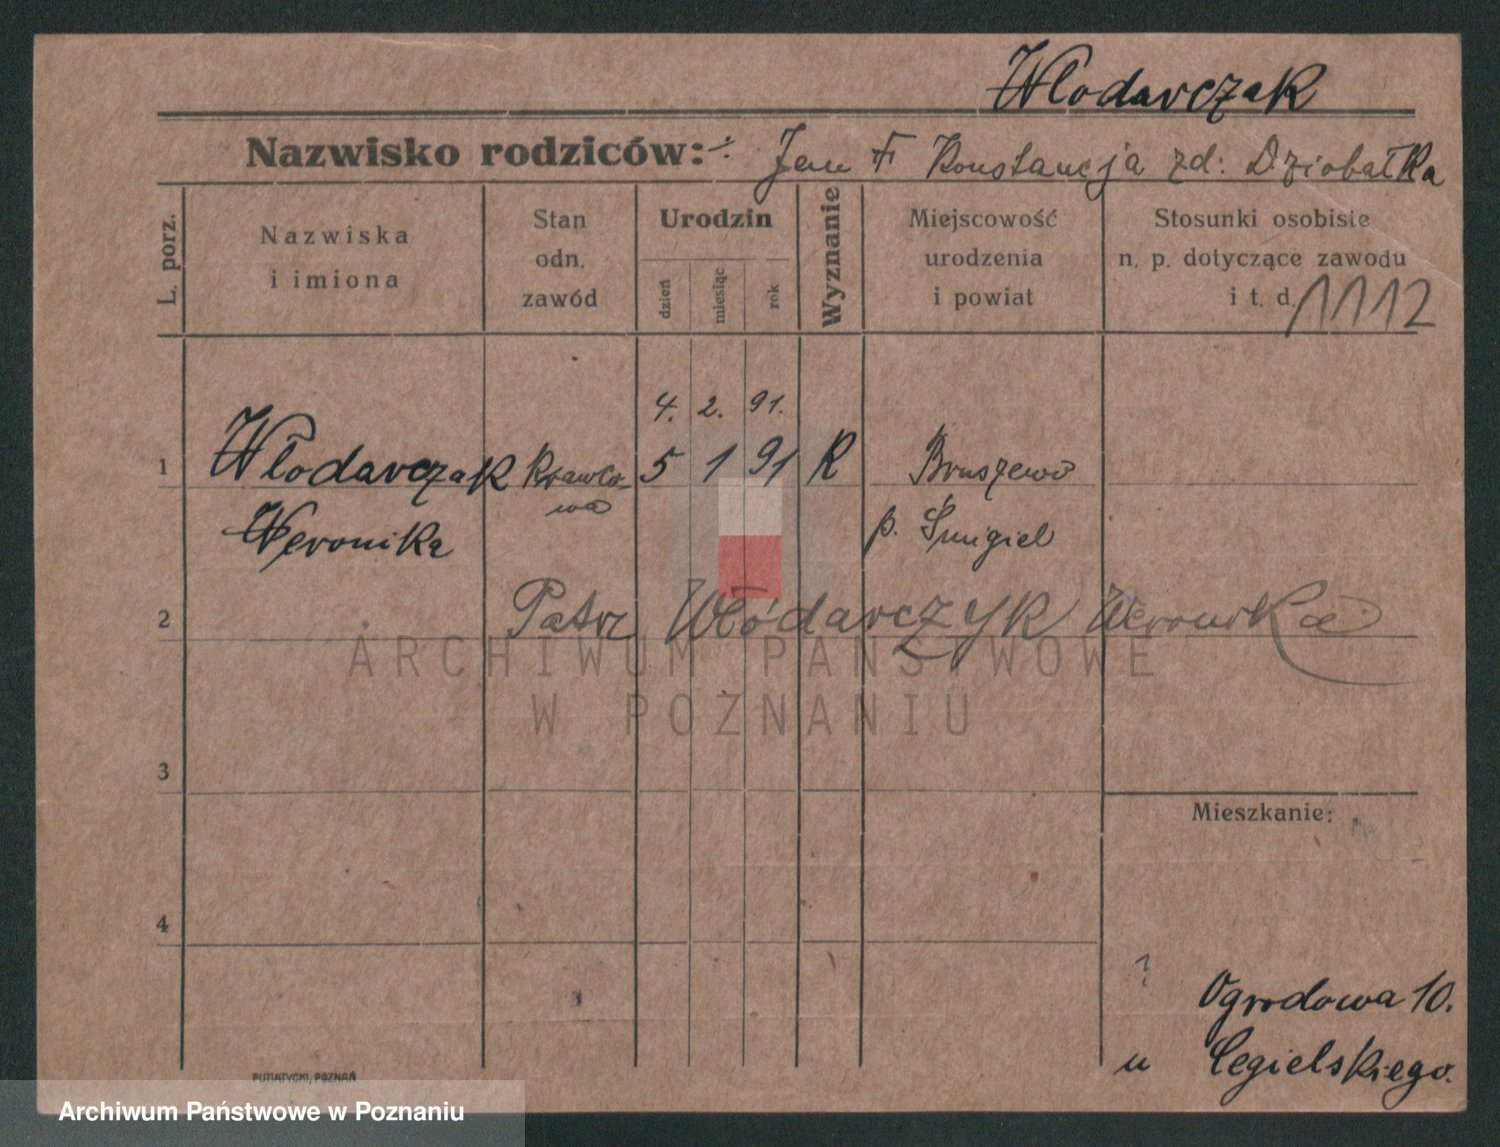 Włodarczak
Nazwisko rodziców: Jan F Konstancja zd: Dziobałka
L. porz.
Nazwiska
i imiona
Stan
odn.
zawód
Urodzin
dzień
miesiąc
rok
Wyznanie
Miejscowość
urodzenia
i powiat
Stosunki osobiste
n. p. dotyczące zawodu
i t. d.
1112
4. 2. 91.
1 Włodarczak Krawco- 5 1 91 R Bruszewo
wa
Weronika p. Śmigiel
2 Patrz Włódarczyk Weronika
ARCHIWUM PAŃSTWOWE
W POZNANIU
3
Mieszkanie:
4
?
Ogrodowa 10.
u Cegielskiego.
PUTIATYCKI, POZNAŃ
Archiwum Państwowe w Poznaniu